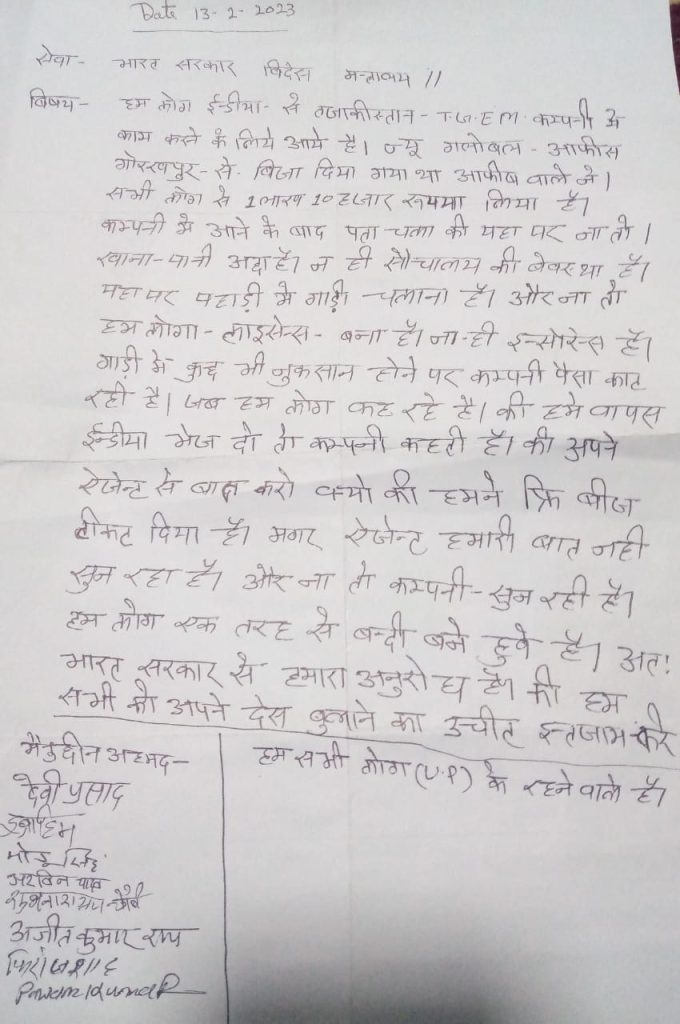 Date 13-2-2023
सेवा- भारत सरकार विदेस मन्त्रालय //
विषय- हम लोग ईन्डीया- से तजाकीस्तान - T.G.E.M. कम्पनी मे
काम करने के लिये आये है। न्यू गलोबल - आफीस
गोरखपुर- से. विजा दिया गया था आफीस वाले ने।
सभी लोग से 1 लाख 10 हजार रूपया लिया है।
कम्पनी मे आने के बाद पता चला की यहा पर ना तो।
खाना-पानी अछा है। न ही सौचालय की वेवस्था है।
यहा पर पहाड़ी मे गाड़ी चलाना है। और ना तो
हम लोगा - लाइसेन्स - बना है। ना-ही इन्सोरेन्स है।
गाड़ी मे कुछ भी नुकसान होने पर कम्पनी पैसा काट
रही है। जब हम लोग कह रहे है। की हमे वापस
ईन्डीया भेज दो तो कम्पनी कहती है। की अपने
ऐजेन्ट से बात करो क्यो की हमने फ्रि बीजा
टीकट दिया है। मगर ऐजेन्ट हमारी बात नही
सुन रहा है। और ना तो कम्पनी - सुन रही है।
हम लोग एक तरह से बन्दी बने हुवे है। अतः
भारत सरकार से हमारा अनुरोध है। की हम
सभी को अपने देस बुलाने का उचीत इन्तजाम करे
हम सभी लोग (U.P) के रहने वाले है।
मैनुदीन अहमद-
देवी प्रसाद
इब्राहिम
सिंह
अरविन
अजीत कुमार राय
Pawan Kumar